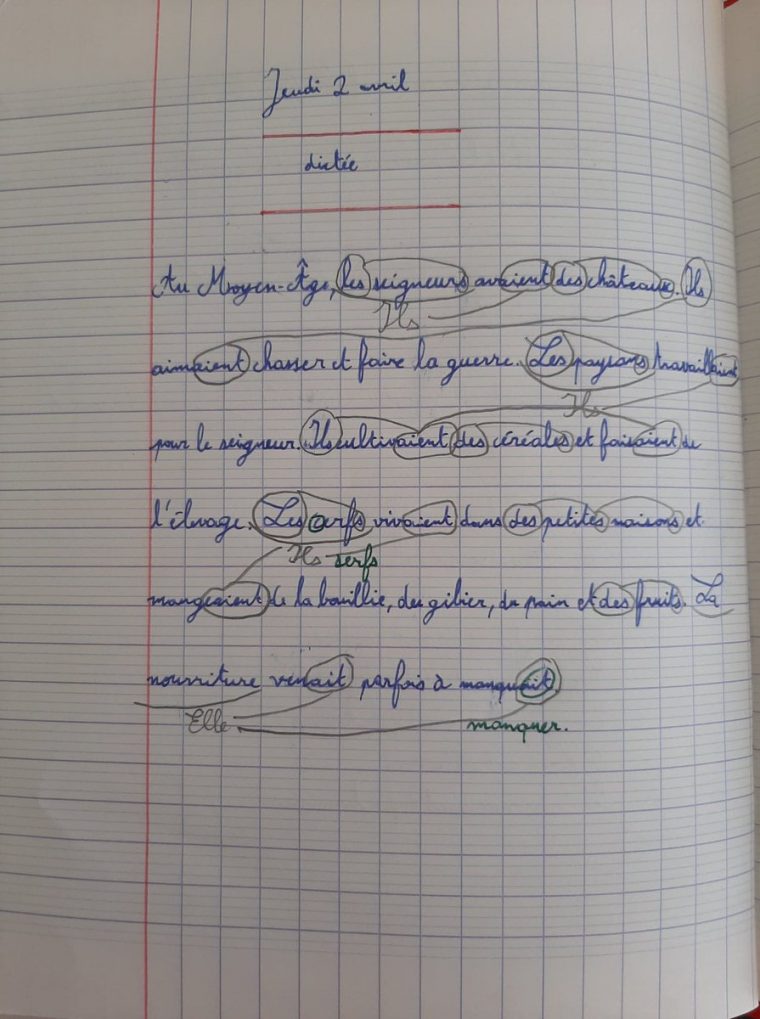 Jeudi 2 avril
dictée
Au Moyen-Âge, les seigneurs avaient des châteaux. Ils
Ils
aimaient chasser et faire la guerre. Les paysans travaillaient
Ils
pour le seigneur. Ils cultivaient des céréales et faisaient de
l'élevage. Les cerfs vivaient dans des petites maisons et
Ils serfs
mangeaient de la bouillie, du gibier, du pain et des fruits. La
nourriture venait parfois à manquait.
Elle
manquer.